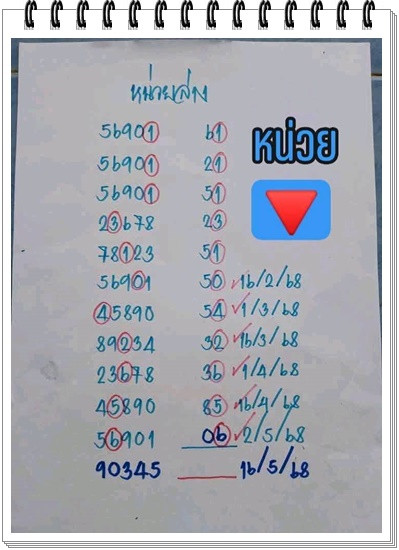 หน่วยล่าง
56901 61
56901 21
56901 51
23678 23
78123 51
56901 50 ✓ 16/2/68
45890 54 ✓ 1/3/68
89234 32 ✓ 16/3/68
23678 36 ✓ 1/4/68
45890 85 ✓ 16/4/68
56901 06 ✓ 2/5/68
90345 16/5/68
หน่วย